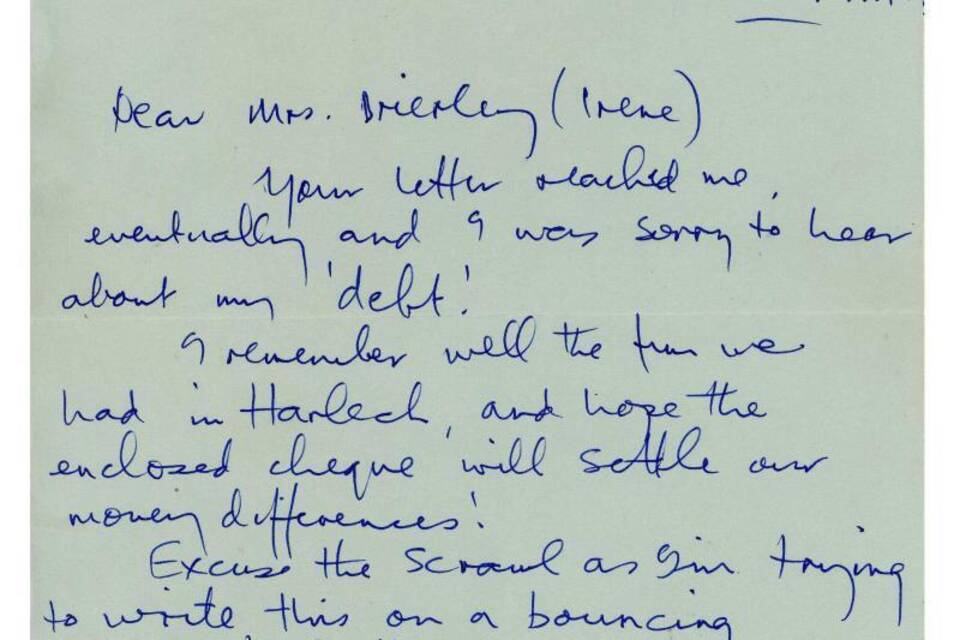 Dear Mrs. Brierley (Irene)
Your letter reached me,
eventually and I was sorry to hear
about my 'debt'.
I remember well the fun we
had in Harlech, and hope the
enclosed cheque will settle our
money differences!
Excuse the scrawl as I'm trying
to write this on a bouncing